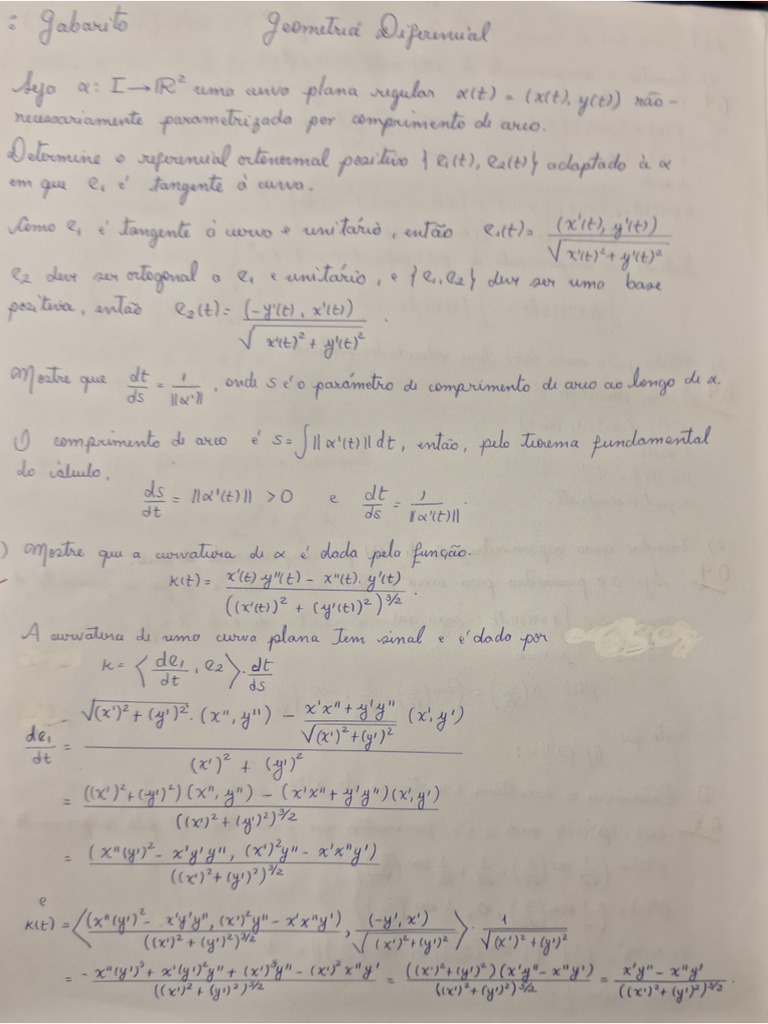 : Gabarito Geometria Diferencial
Seja α: I → ℝ² uma curva plana regular α(t) = (x(t), y(t)) não-
necessariamente parametrizada por comprimento de arco.
Determine o referencial ortonormal positivo {e₁(t), e₂(t)} adaptado à α
em que e₁ é tangente à curva.
Como e₁ é tangente à curva e unitário, então e₁(t) = (x'(t), y'(t)) / √(x'(t)² + y'(t)²)
e₂ deve ser ortogonal a e₁ e unitário, e {e₁, e₂} deve ser uma base
positiva, então e₂(t) = (-y'(t), x'(t)) / √(x'(t)² + y'(t)²).
Mostre que dt/ds = 1/||α'||, onde s é o parâmetro de comprimento de arco ao longo de α.
O comprimento de arco é s = ∫||α'(t)|| dt, então, pelo teorema fundamental
do cálculo,
ds/dt = ||α'(t)|| > 0 e dt/ds = 1/||α'(t)||.
) Mostre que a curvatura de α é dada pela função.
κ(t) = (x'(t)·y''(t) - x''(t)·y'(t)) / ((x'(t))² + (y'(t))²)^(3/2).
A curvatura de uma curva plana tem sinal e é dado por
κ = ⟨de₁/dt, e₂⟩·dt/ds
de₁/dt = (√((x')² + (y')²)·(x'', y'') - (x'x'' + y'y'')/√((x')² + (y')²) (x', y')) / ((x')² + (y')²)
= (((x')² + (y')²)(x'', y'') - (x'x'' + y'y'')(x', y')) / ((x')² + (y')²)^(3/2)
= (x''(y')² - x'y'y'', (x')²y'' - x'x''y') / ((x')² + (y')²)^(3/2)
e
κ(t) = ⟨(x''(y')² - x'y'y'', (x')²y'' - x'x''y') / ((x')² + (y')²)^(3/2), (-y', x') / √((x')² + (y')²)⟩ · 1/√((x')² + (y')²)
= (-x''(y')³ + x'(y')²y'' + (x')³y'' - (x')²x''y') / ((x')² + (y')²)^(5/2) = (((x')² + (y')²)(x'y'' - x''y')) / ((x')² + (y')²)^(5/2) = (x'y'' - x''y') / ((x')² + (y')²)^(3/2).